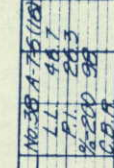 No. 38 A-7-5 (18)
L.L. 48.7
P.I. 26.3
%-200 98
C.B.R.